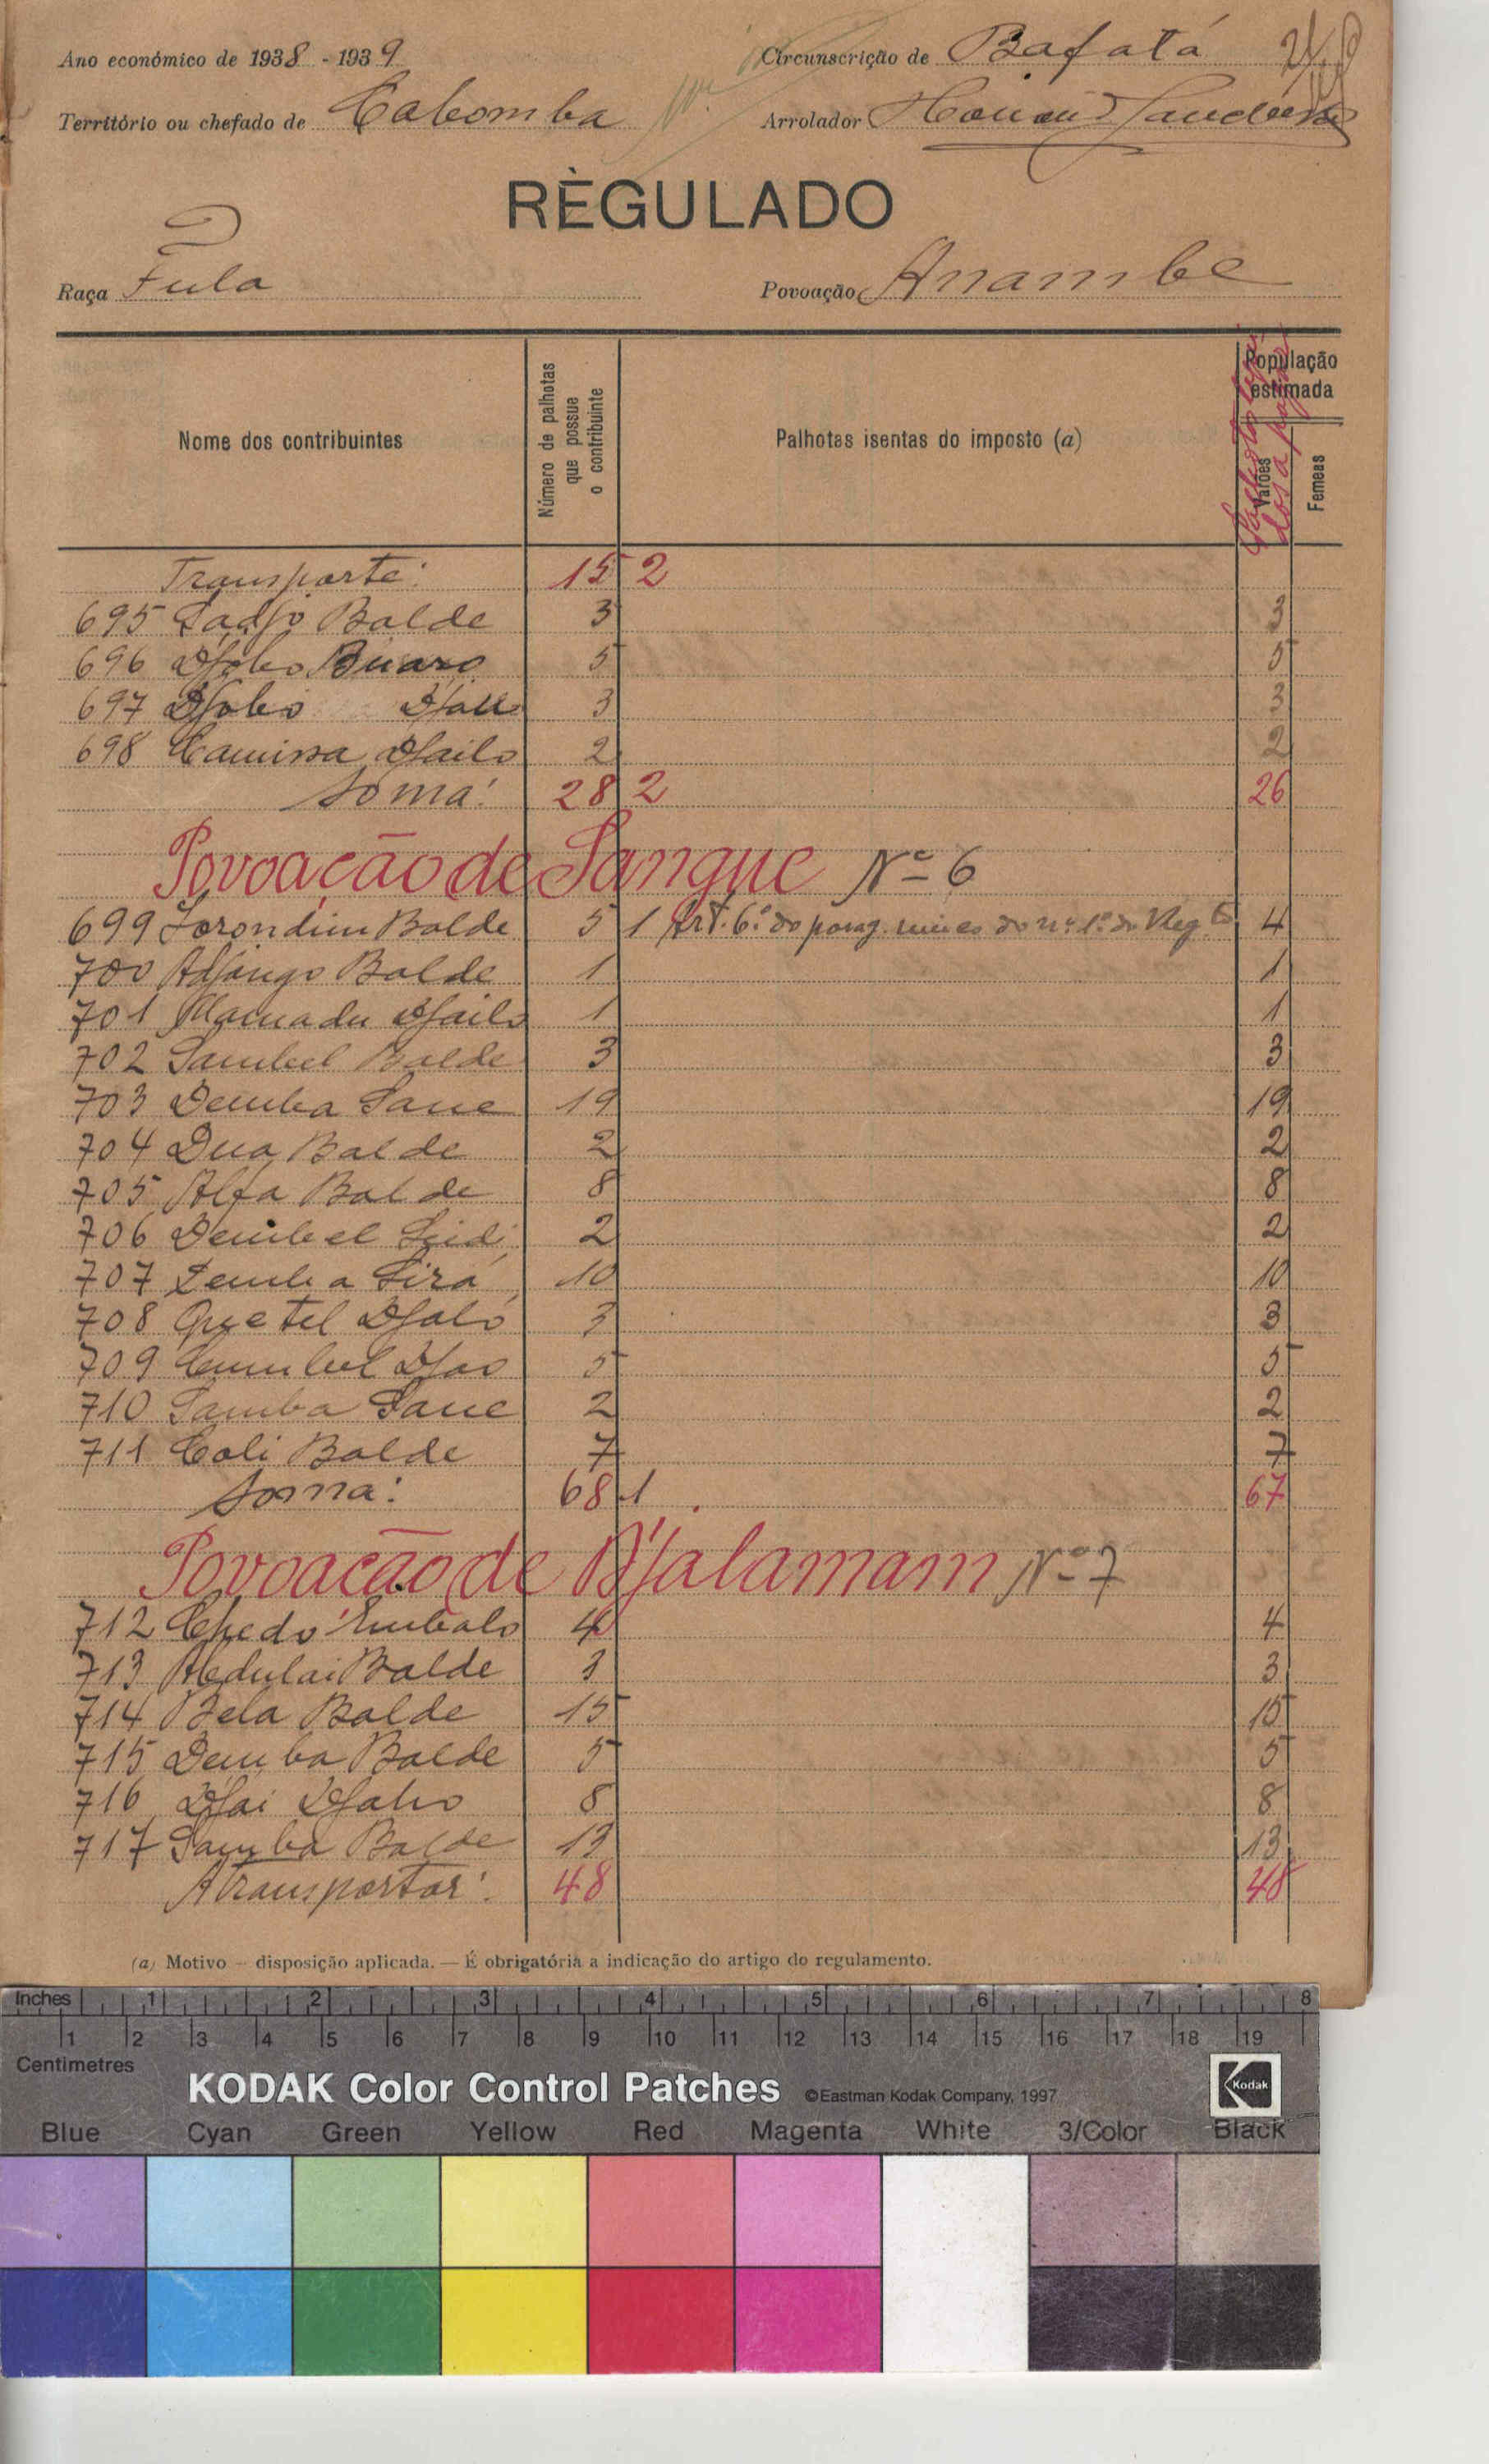 Ano económico de 1938 - 1939
Circunscrição de Bafatá
Território ou chefado de Cabomba
Arrolador
RÈGULADO
Raça Fula
Povoação Anambe
Nome dos contribuintes
Número de palhotas que possue o contribuinte
Palhotas isentas do imposto (a)
População estimada
Varões
Femeas
Transporte: 15 2
695 Sadjo Balde 3 3
696 Djobo Buaro 5 5
697 Djobo 3 3
698 Camissa Djailo 2 2
Soma: 28 2 26
Povoação de Sangue Nº 6
699 Sorondim Balde 5 1 Art. 6.º do parag. do nº 1.º do Reg.to 4
700 Adjango Balde 1 1
701 Mamadu Djailo 1 1
702 Sambel Balde 3 3
703 Demba Sane 19 19
704 Dua Balde 2 2
705 Alfa Balde 8 8
706 Dembel 2 2
707 Demba Sirá 10 10
708 Quetel Djaló 3 3
709 Cumbel Djao 5 5
710 Samba Sane 2 2
711 Coli Balde 7 7
Soma: 68 1 67
Povoação de Djalamam Nº 7
712 Chedo Embalo 4 4
713 Abdulai Balde 3 3
714 Bela Balde 15 15
715 Demba Balde 5 5
716 Djai Djalo 8 8
717 Samba Balde 13 13
A transportar: 48 48
(a) Motivo - disposição aplicada. — É obrigatória a indicação do artigo do regulamento.
Inches 1 2 3 4 5 6 7 8
1 2 3 4 5 6 7 8 9 10 11 12 13 14 15 16 17 18 19
Centimetres
KODAK Color Control Patches ©Eastman Kodak Company, 1997 Kodak
Blue Cyan Green Yellow Red Magenta White 3/Color Black